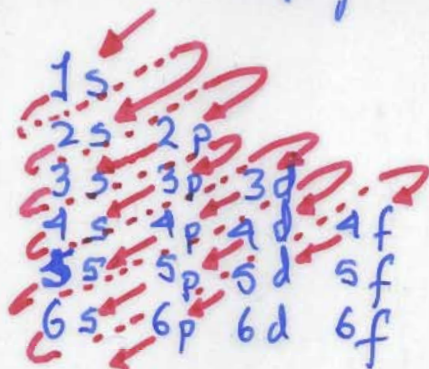 1s
2s 2p
3s 3p 3d
4s 4p 4d 4f
5s 5p 5d 5f
6s 6p 6d 6f